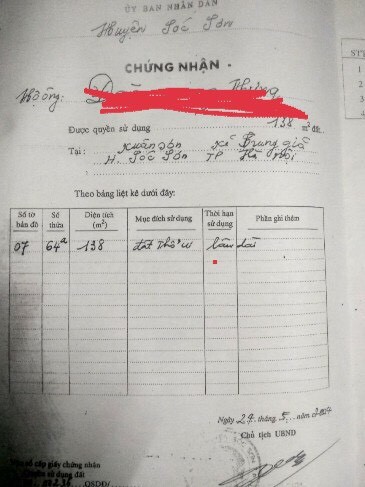 ỦY BAN NHÂN DÂN
Huyện Sóc Sơn
CHỨNG NHẬN
Hộ ông:
Được quyền sử dụng 138 m² đất
Tại: Xuân Sơn Xã Trung Giã
H. Sóc Sơn TP Hà Nội
Theo bảng liệt kê dưới đây:
Số tờ bản đồ Số thửa Diện tích (m²) Mục đích sử dụng Thời hạn sử dụng Phần ghi thêm
07 64a 138 đất thổ cư lâu dài
Ngày 24 tháng 5 năm
Chủ tịch UBND
sổ cấp giấy chứng nhận
quyền sử dụng đất
QSDĐ/
STT
1
2
3
4